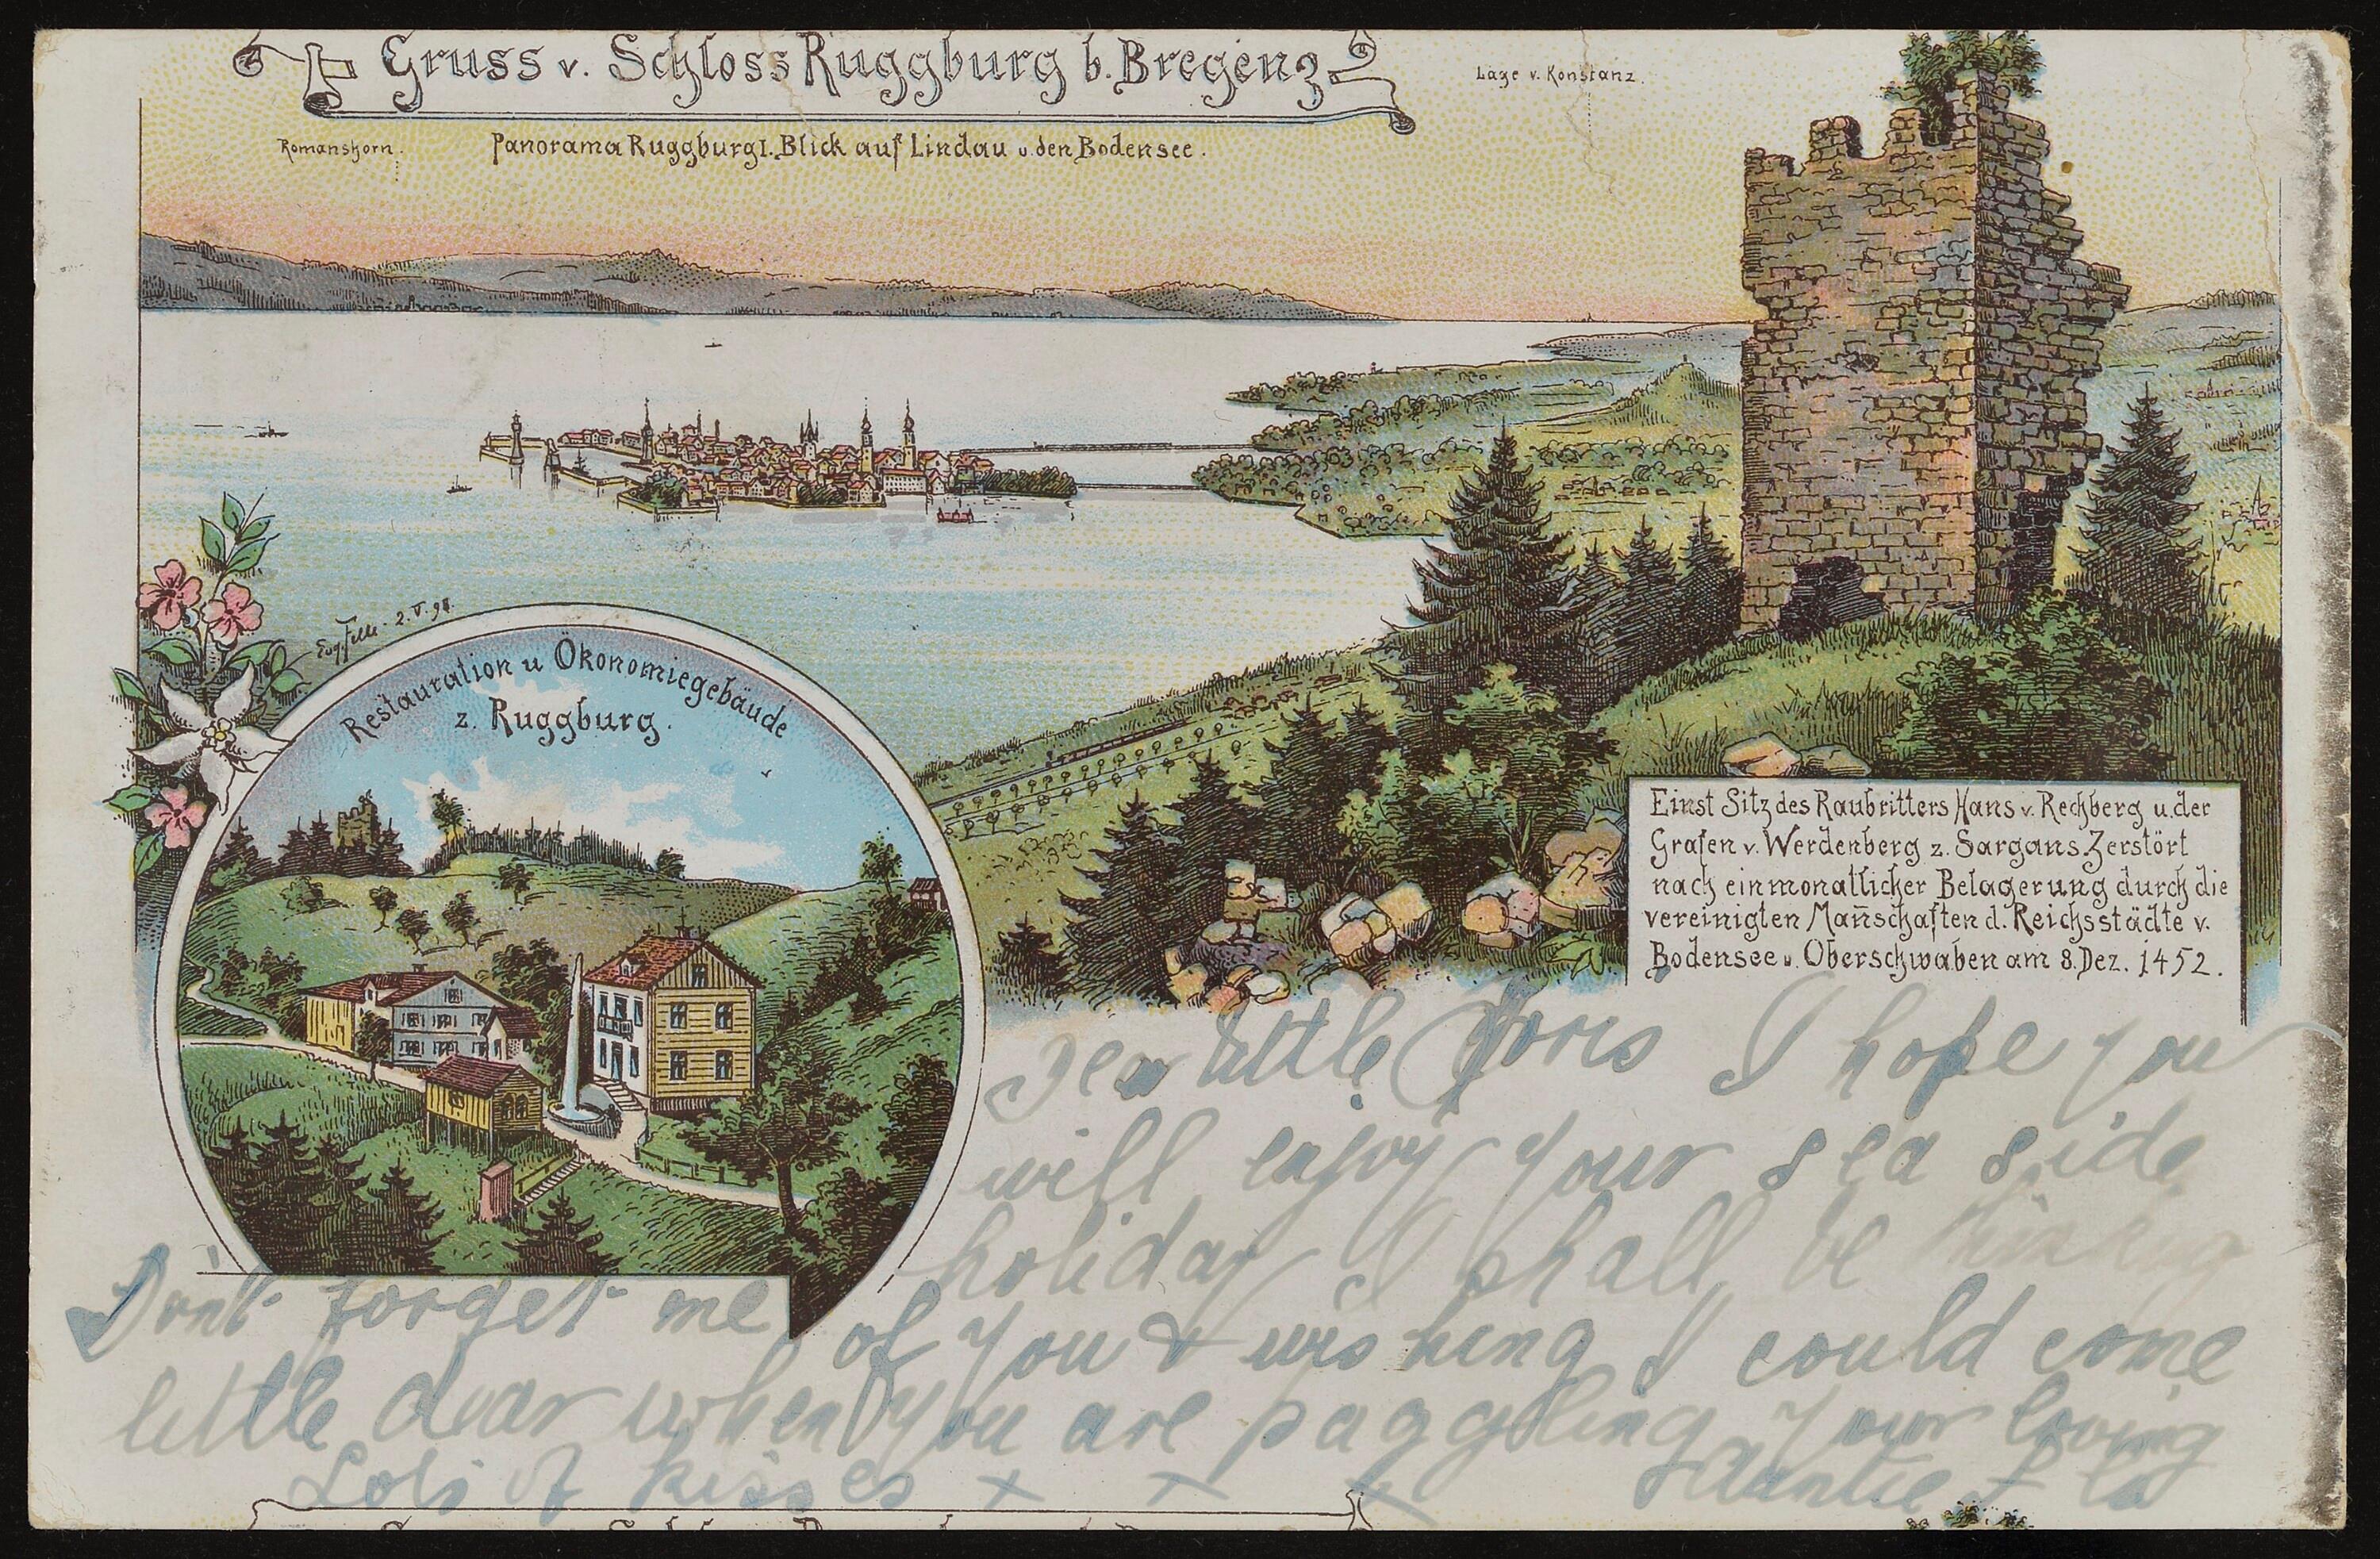 Gruss v. Schloss Ruggburg b. Bregenz
Lage v. Konstanz.
Romanshorn.
Panorama Ruggburg I. Blick auf Lindau u. den Bodensee.
Eug. Felle. 2.V.98.
Restauration u Ökonomiegebäude
z. Ruggburg.
Einst Sitz des Raubritters Hans v. Rechberg u. der
Grafen v. Werdenberg z. Sargans. Zerstört
nach einmonatlicher Belagerung durch die
vereinigten Man̄schaften d. Reichsstädte v.
Bodensee u. Oberschwaben am 8. Dez. 1452.
Dear little Doris I hope you
will enjoy your sea side
holiday I shall be thinking
of you & wishing I could come
Don't forget me
little dear when you are paggling your loving
Lots of kisses x x x Auntie